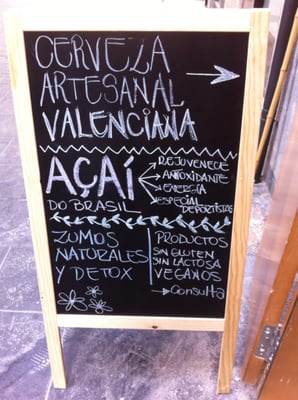 CERVEZA
ARTESANAL
VALENCIANA
AÇAÍ
DO BRASIL
REJUVENECE
ANTIOXIDANTE
ENERGÍA
ESPECIAL
DEPORTISTAS
ZUMOS
NATURALES
Y DETOX
PRODUCTOS
SIN GLUTEN
SIN LACTOSA
VEGANOS
Consulta